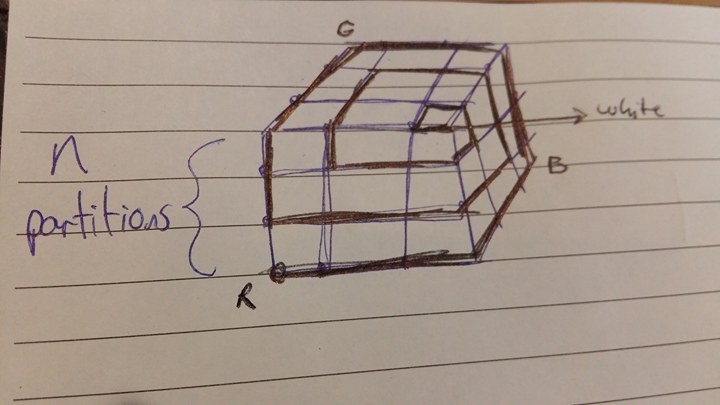 G
white
n
B
partitions
R